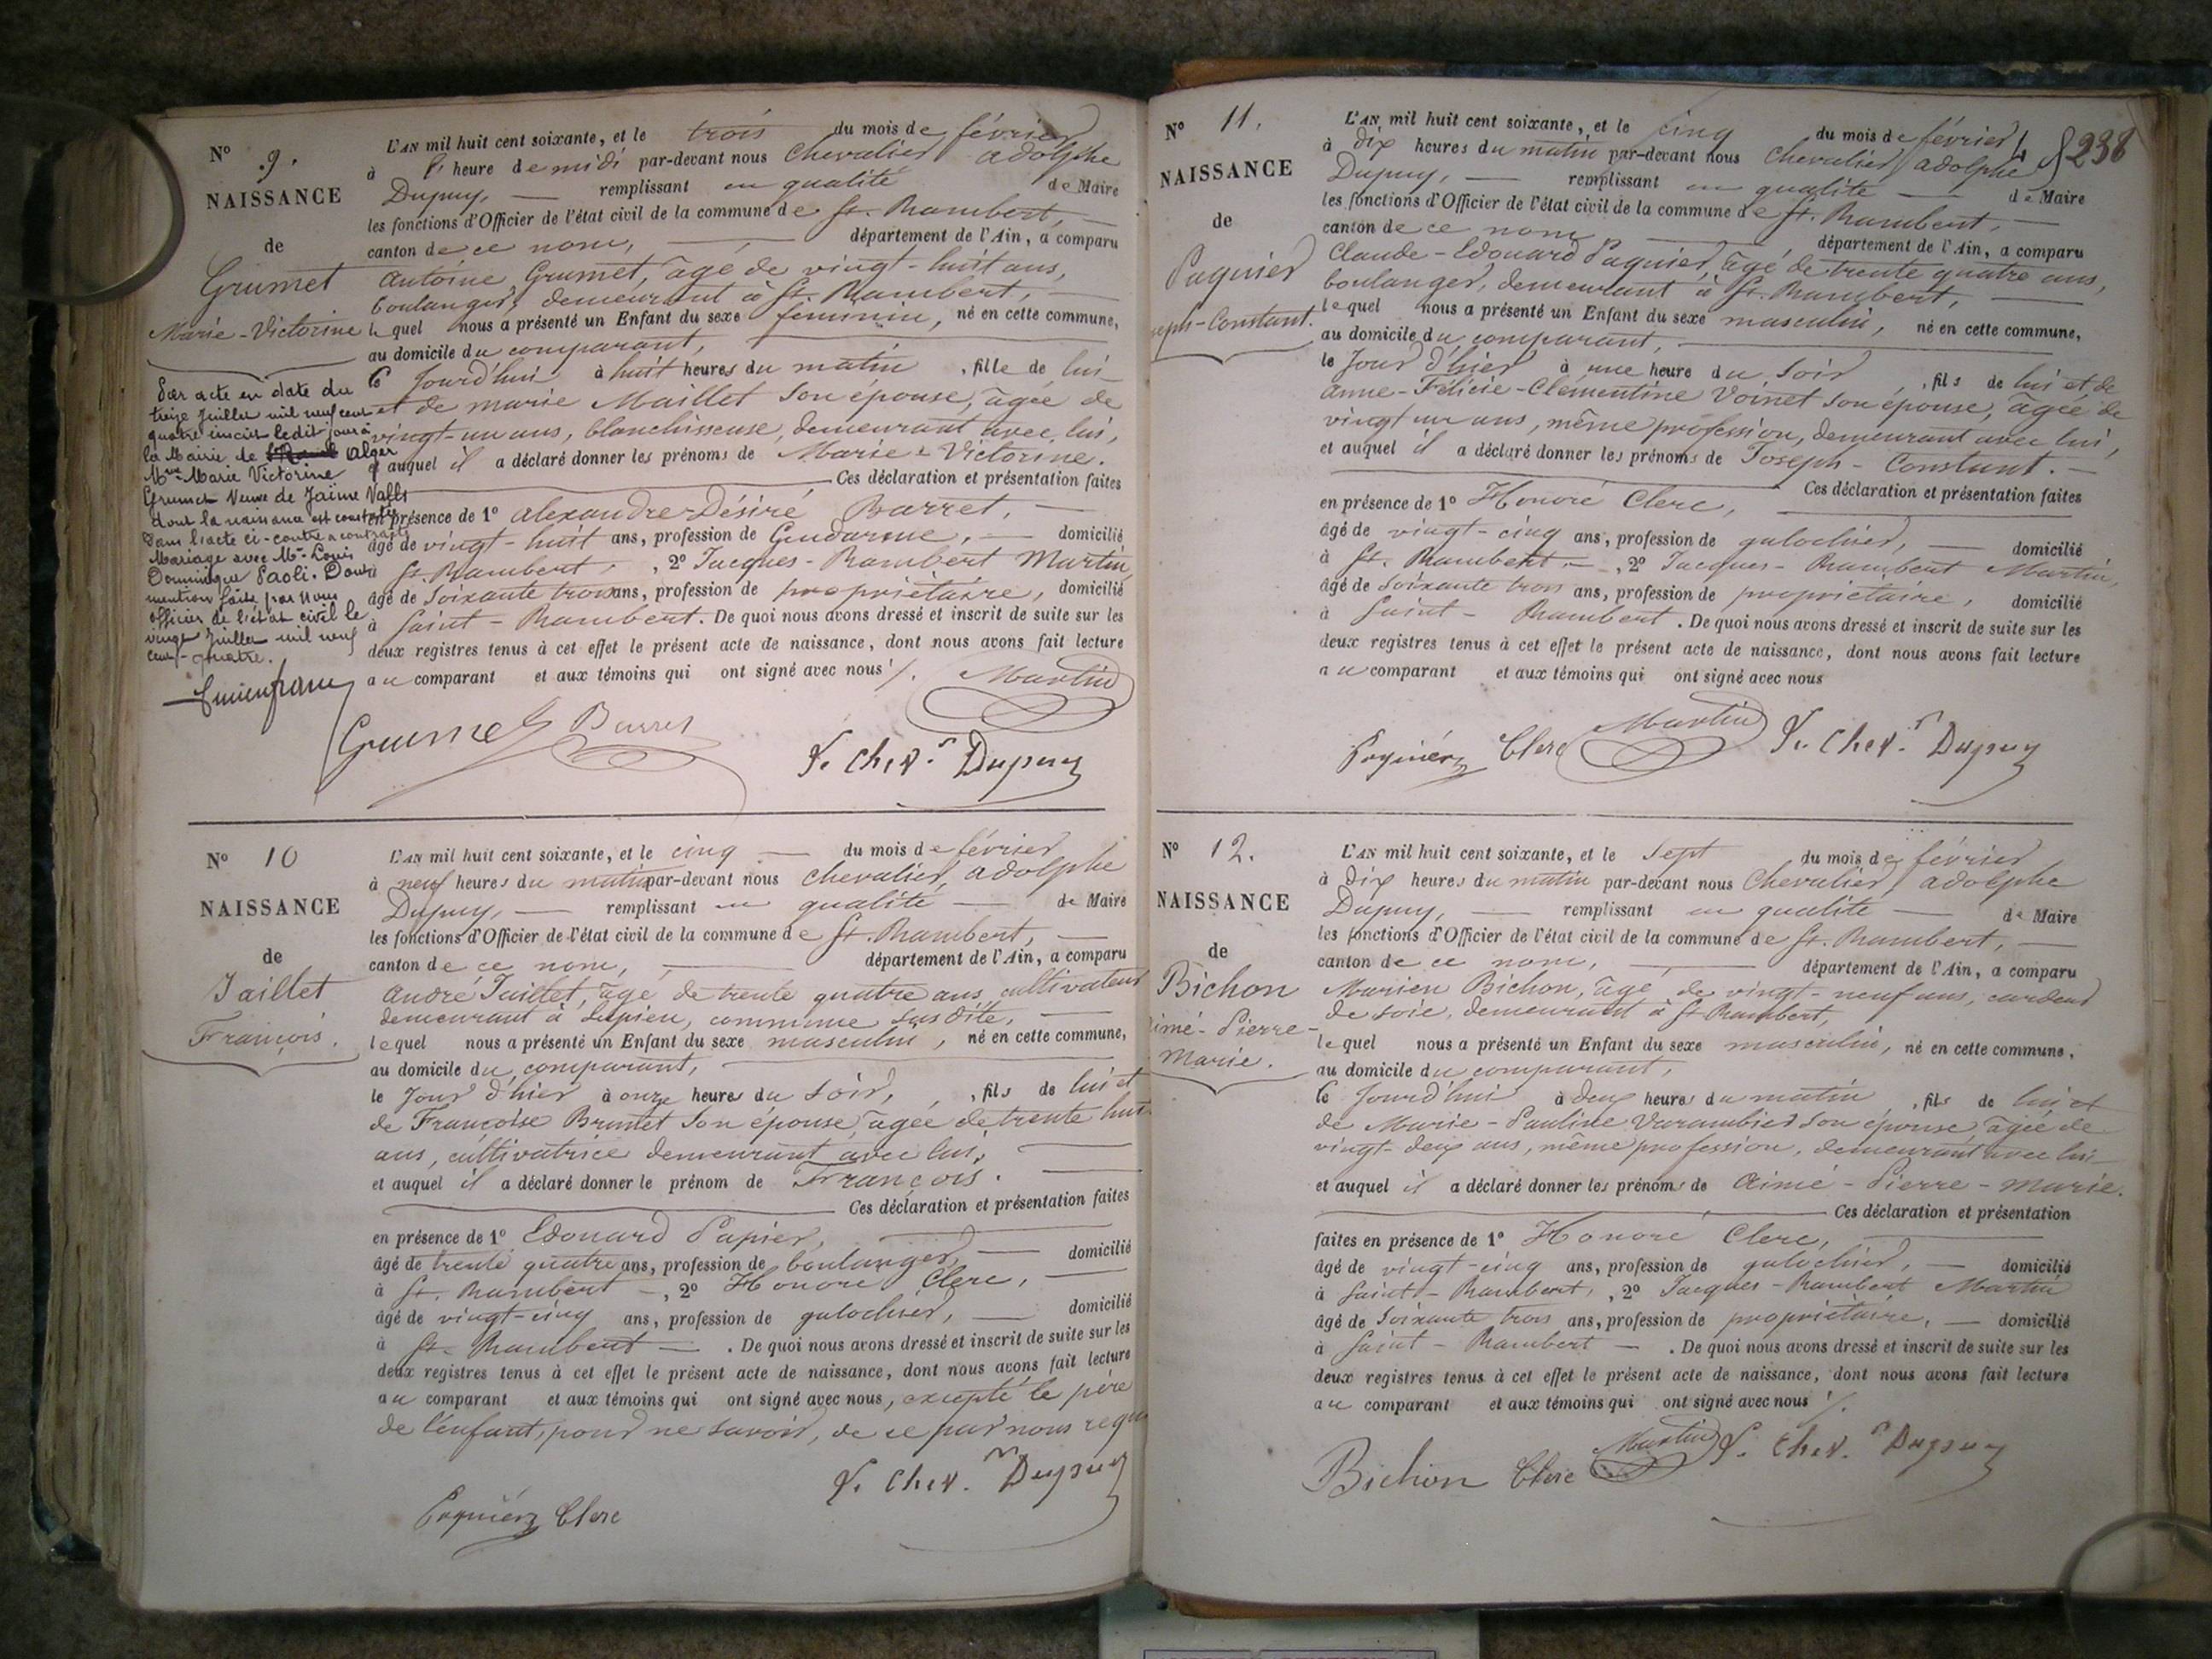 N° 9.
NAISSANCE
de
Grumet
Marie-Victorine
Par acte en date du
treize Juillet mil neuf cent
quatre inscrit ledit jour à
la Mairie de Alger
Mme Marie Victorine
Grumet Veuve de Jaime Valls
dont la naissance est constatée
dans l'acte ci-contre a contracté
Mariage avec Mr Louis
Dominique Paoli. Dont
mention faite par nous
officier de l'état civil le
vingt Juillet mil neuf
cent-quatre.
L'AN mil huit cent soixante, et le trois du mois de février
à l' heure de midi par-devant nous Chevalier Adolphe
Dupuy, — remplissant en qualité de Maire
les fonctions d'Officier de l'état civil de la commune de St. Rambert, —
canton de ce nom, — département de l'Ain, a comparu
Antoine Grumet, âgé de vingt-huit ans,
boulanger, demeurant à St. Rambert, —
lequel nous a présenté un Enfant du sexe féminin, né en cette commune,
au domicile du comparant, —
le Jourd'hui à huit heures du matin, fille de lui
et de marie Maillet son épouse, âgée de
vingt-un ans, blanchisseuse, demeurant avec lui,
et auquel il a déclaré donner les prénoms de Marie-Victorine.
— Ces déclaration et présentation faites
en présence de 1° Alexandre-Désiré Barret, —
âgé de vingt-huit ans, profession de Gendarme, — domicilié
à St. Rambert, 2° Jacques-Rambert Martin,
âgé de soixante trois ans, profession de propriétaire, domicilié
à Saint-Rambert. De quoi nous avons dressé et inscrit de suite sur les
deux registres tenus à cet effet le présent acte de naissance, dont nous avons fait lecture
au comparant et aux témoins qui ont signé avec nous ./.
Martin
Grumet Barret
Chev.r Dupuy
N° 10
NAISSANCE
de
Jaillet
François.
L'AN mil huit cent soixante, et le cinq — du mois de février
à neuf heures du matin par-devant nous Chevalier Adolphe
Dupuy, — remplissant en qualité — de Maire
les fonctions d'Officier de l'état civil de la commune de St. Rambert, —
canton de ce nom, — département de l'Ain, a comparu
André Jaillet, âgé de trente quatre ans, cultivateur
demeurant à Serpieu, commune susdite, —
lequel nous a présenté un Enfant du sexe masculin, né en cette commune,
au domicile du comparant, —
le Jour d'hier à onze heures du soir, fils de lui et
de Françoise Brunet son épouse, âgée de trente huit
ans, cultivatrice demeurant avec lui, —
et auquel il a déclaré donner le prénom de François. —
— Ces déclaration et présentation faites
en présence de 1° Edouard Papier, —
âgé de trente quatre ans, profession de boulanger, — domicilié
à St. Rambert —, 2° Honoré Clerc, —
âgé de vingt-cinq ans, profession de galochier, — domicilié
à St. Rambert — . De quoi nous avons dressé et inscrit de suite sur les
deux registres tenus à cet effet le présent acte de naissance, dont nous avons fait lecture
au comparant et aux témoins qui ont signé avec nous, excepté le père
de l'enfant, pour ne savoir, de ce par nous requ
Chev.r Dupuy
Paquier Clerc
238
N° 11.
NAISSANCE
de
Paquier
eph-Constant.
L'AN mil huit cent soixante, et le cinq du mois de février
à dix heures du matin par-devant nous Chevalier Adolphe
Dupuy, — remplissant en qualité — de Maire
les fonctions d'Officier de l'état civil de la commune de St. Rambert, —
canton de ce nom — , département de l'Ain, a comparu
Claude-Edouard Paquier, âgé de trente quatre ans,
boulanger, demeurant à St. Rambert, —
lequel nous a présenté un Enfant du sexe masculin, né en cette commune,
au domicile du comparant, —
le Jour d'hier à une heure du soir, fils de lui et de
Anne-Félicie-Clémentine Voinet son épouse, âgée de
vingt un ans, même profession, demeurant avec lui,
et auquel il a déclaré donner les prénoms de Joseph-Constant. —
— Ces déclaration et présentation faites
en présence de 1° Honoré Clerc, —
âgé de vingt-cinq ans, profession de galochier, — domicilié
à St. Rambert —, 2° Jacques-Rambert Martin,
âgé de soixante trois ans, profession de propriétaire, domicilié
à Saint-Rambert. De quoi nous avons dressé et inscrit de suite sur les
deux registres tenus à cet effet le présent acte de naissance, dont nous avons fait lecture
au comparant et aux témoins qui ont signé avec nous
Paquier Clerc Martin Chev.r Dupuy
N° 12.
NAISSANCE
de
Bichon
imé-Pierre-
Marie.
L'AN mil huit cent soixante, et le sept du mois de février
à dix heures du matin par-devant nous Chevalier Adolphe
Dupuy, — remplissant en qualité — de Maire
les fonctions d'Officier de l'état civil de la commune de St. Rambert, —
canton de ce nom, — , département de l'Ain, a comparu
Marien Bichon, âgé de vingt-neuf ans, cardeur
de soie, demeurant à St Rambert,
lequel nous a présenté un Enfant du sexe masculin, né en cette commune,
au domicile du comparant,
le Jourd'hui à deux heures du matin, fils de lui et
de Marie-Pauline Varambier son épouse âgée de
vingt-deux ans, même profession, demeurant avec lui
et auquel il a déclaré donner les prénoms de Aimé-Pierre-Marie.
— Ces déclaration et présentation
faites en présence de 1° Honoré Clerc, —
âgé de vingt-cinq ans, profession de galochier, — domicilié
à Saint-Rambert, 2° Jacques-Rambert Martin
âgé de soixante trois ans, profession de propriétaire, — domicilié
à Saint-Rambert — . De quoi nous avons dressé et inscrit de suite sur les
deux registres tenus à cet effet le présent acte de naissance, dont nous avons fait lecture
au comparant et aux témoins qui ont signé avec nous ./.
Bichon Clerc Martin Chev.r Dupuy